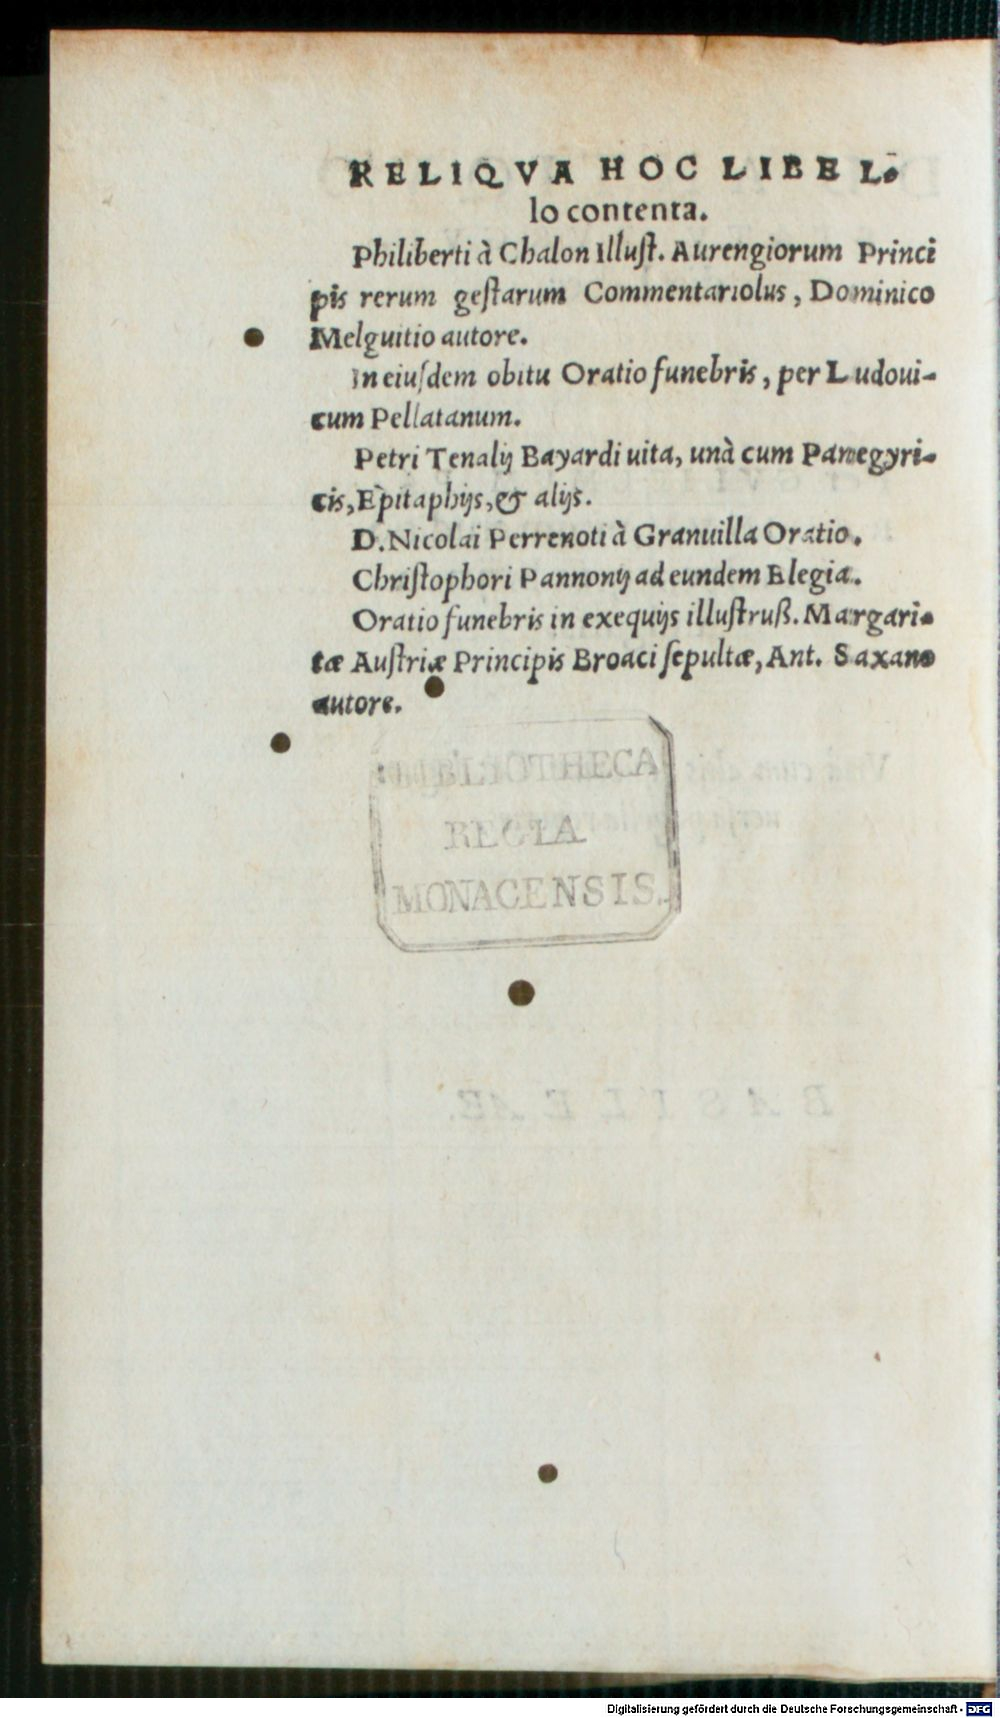 RELIQVA HOC LIBEL-
lo contenta.
Philiberti à Chalon Illuſt. Aurengiorum Princi
pis rerum geſtarum Commentariolus, Dominico
Melguitio autore.
In eiuſdem obitu Oratio funebris, per Ludoui-
cum Pellatanum.
Petri Tenalij Bayardi uita, unà cum Panegyri-
cis, Epitaphijs, & alijs.
D. Nicolai Perrenoti à Granuilla Oratio.
Chriſtophori Pannonij ad eundem Elegia.
Oratio funebris in exequijs illuſtruß. Margari-
tæ Auſtriæ Principis Broaci ſepultæ, Ant. Saxano
autore.
BIBLIOTHECA
REGIA
MONACENSIS.
Digitalisierung gefördert durch die Deutsche Forschungsgemeinschaft - DFG